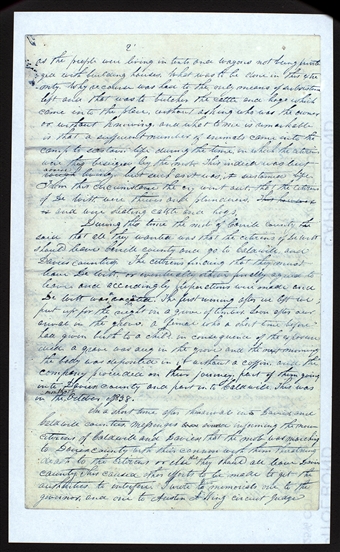 2
as the people were living in tents and wagons not being privile
ged with building houses. What was to be done in this extre
mity. Why recourse was had to the only means of subsistence
left and that was to butcher the cattle and hogs which
came into the place without asking who was the owner
or without knowing; and what to me is remarkable
is that a sufficient number of animals came into the
camp to sustain life during the time in which the citizens
were thus besieged by the mob. This indeed was but
coarse living, but such as it was, it sustained life.
From this circumstance the cry went out, that the citizens
of De Witt were thieves and plunderers,
and were stealing cattle and hogs.
During this time the mob of Carroll county
said that all they wanted was that the citizens of De Witt
should leave Carroll county and go to Caldwell and
Davies counties. The citizens finding that they must
leave De Witt, or eventually starve, finally agreed to
leave and accordingly preparations were made and
De Witt was vacated. The first evening after we left we
put up for the night in a grove of timber. Soon after our
arrival in the grove, a female who a short time before
had given birth to a child, in consequence of the exposure
died. a grave was dug in the grove and the next morning
the body was deposited in it without a coffin and the
company proceeded on their journey, part of them going
into Davies county and part into Caldwell. This was
in the month of October 1838.
In a short time after their arrival in Davies and
Caldwell counties messengers were sent informing the
citizens of Caldwell and Davies that the mob was marching
to Davies county with their cannon with them threatening
death to the citizens or else that they should all leave Davies
county, this caused other efforts to be made to get the
authorities to interfere. I wrote two memorials one to the
governor and one to Austin A King circuit judge